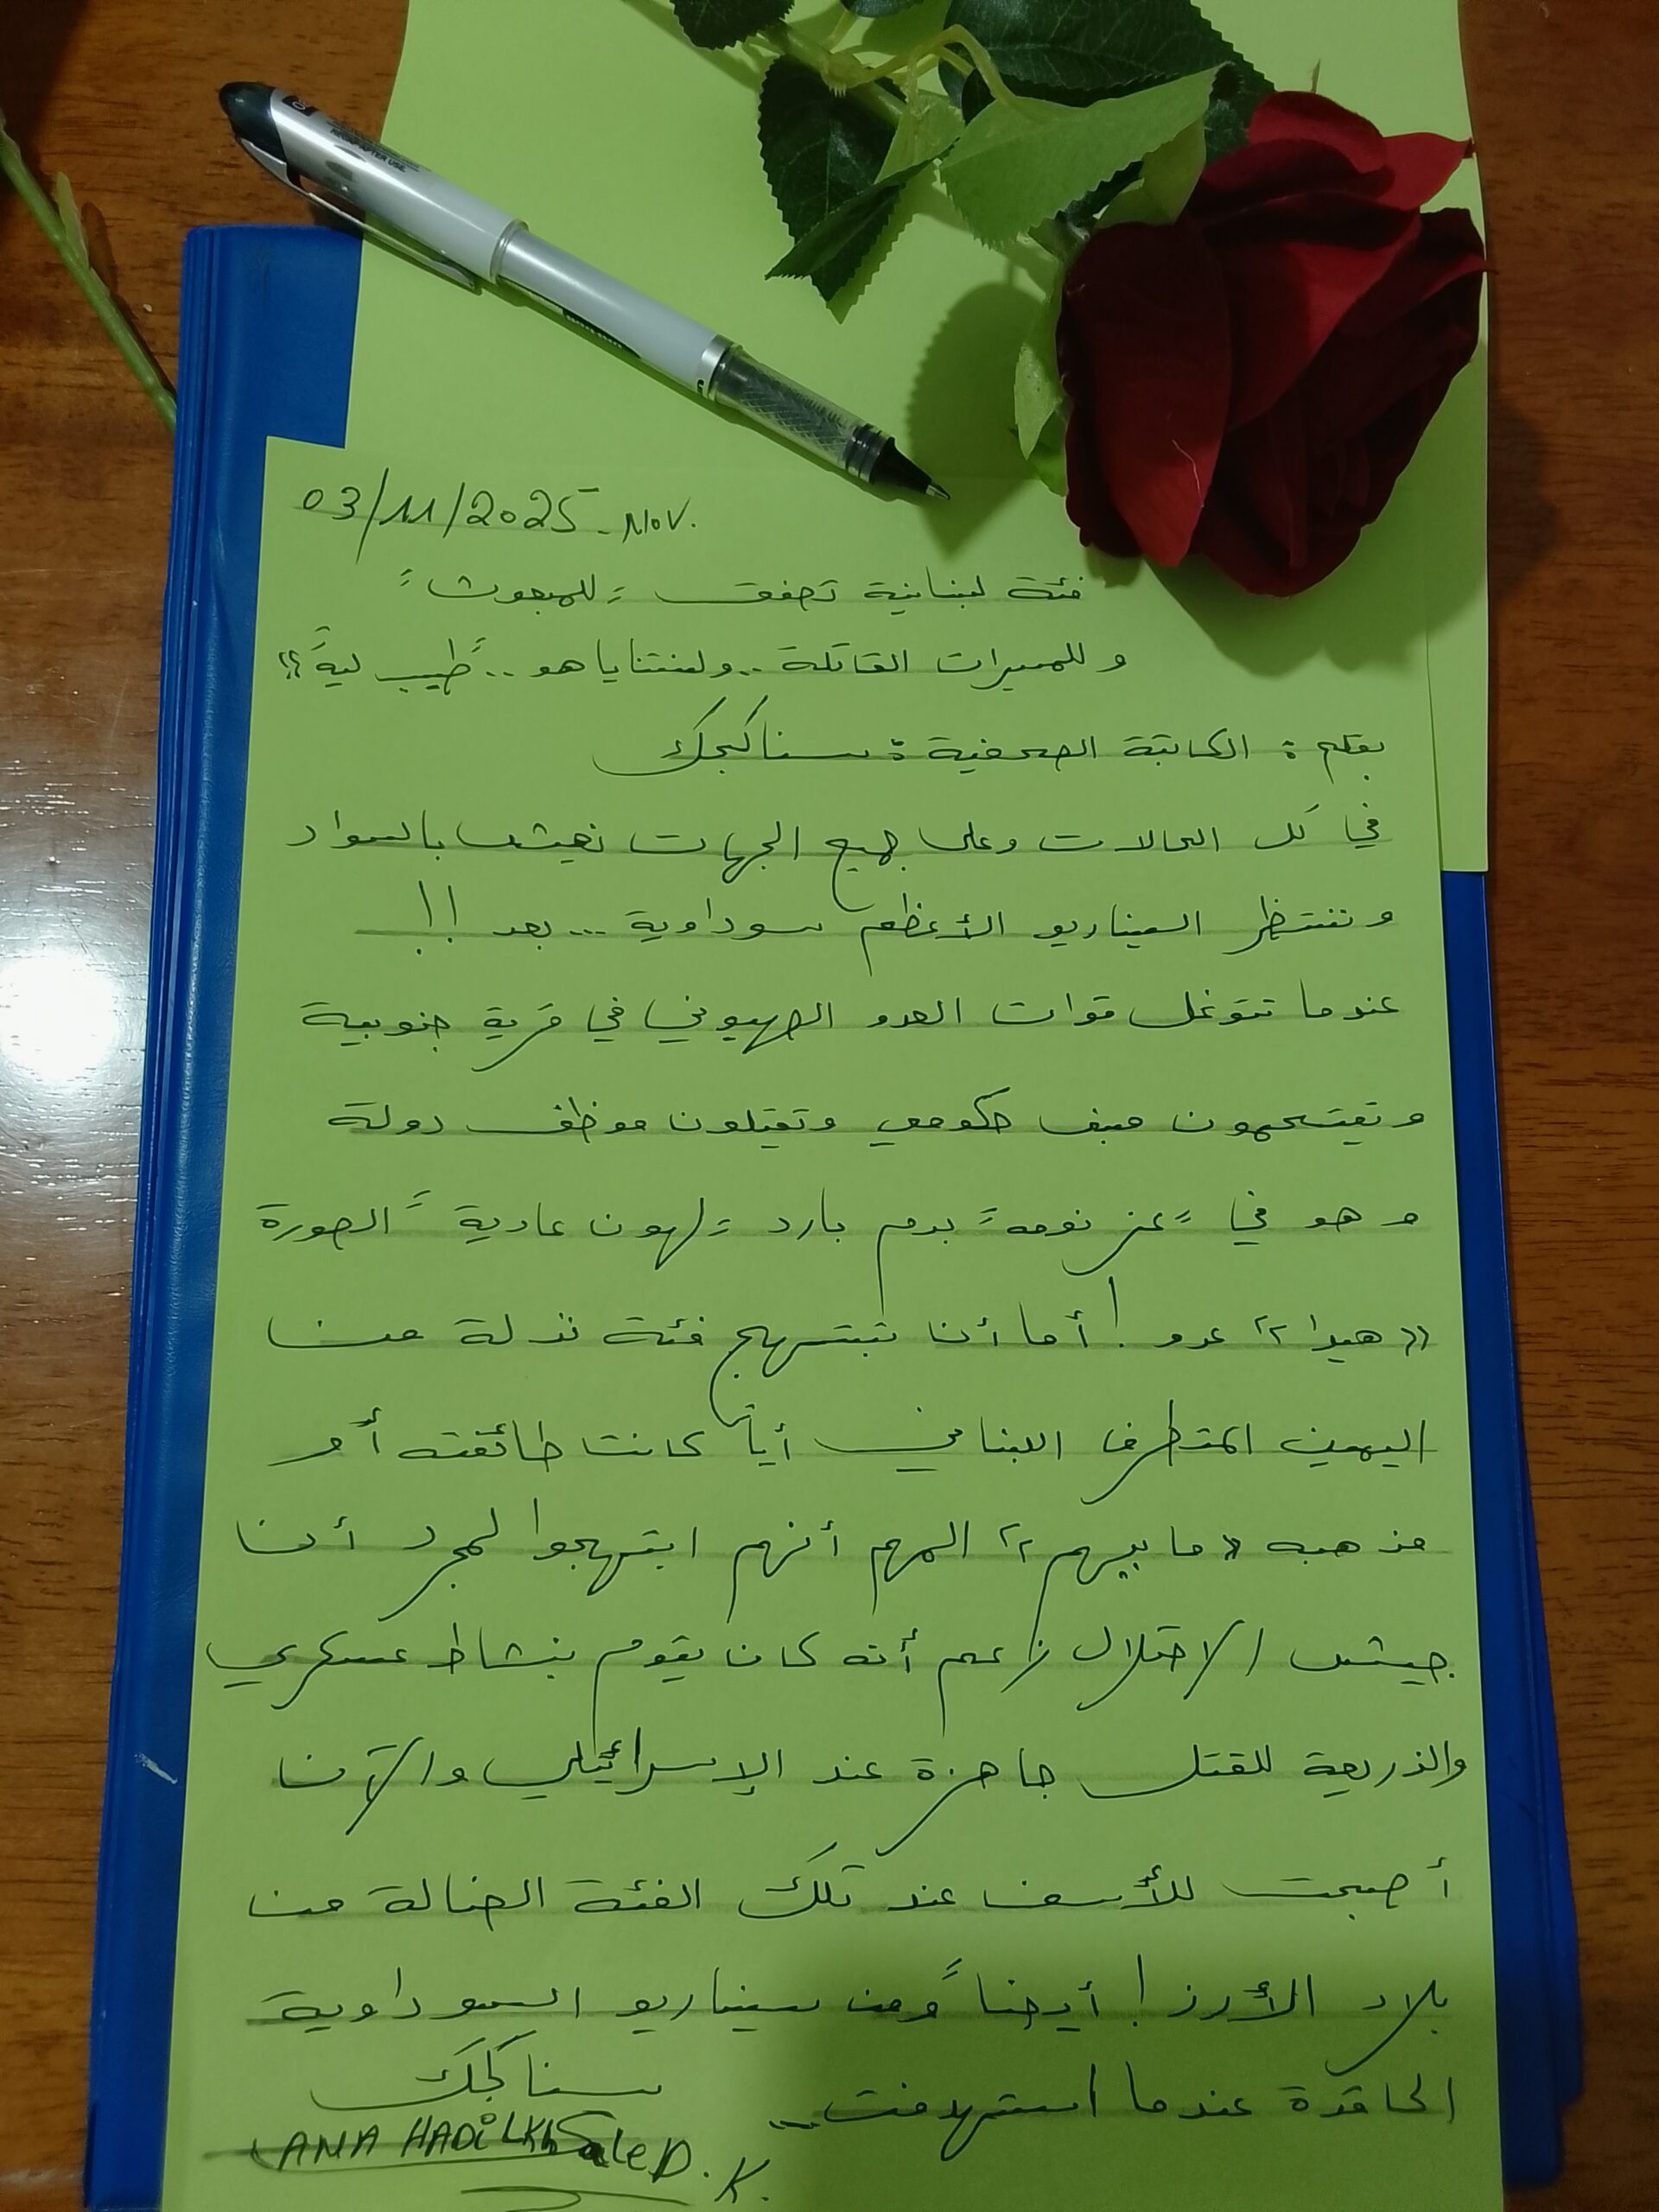 03/11/2025 - Nov.
فئة لبنانية تصفق "للمبعوث"
و للمسيرات القاتلة .. ولنتنياهو .. "طيب ليه"؟!
بقلم : الكاتبة الصحفية : سنا كجك
في كل الحالات وعلى جميع الجهات نعيش بالسواد
وننتظر السيناريو الأعظم سوداوية ... بعد !!
عندما تتوغل قوات العدو الصهيوني في قرية جنوبية
و تقتحمون مبنى حكومي وتقتلون موظف دولة
و هو في "عز نومه" بدم بارد "لهون عادية" الصورة
«هيدا» عدو ! أما أن تبتهج فئة نذلة من
اليمين المتطرف اللبناني أياً كانت طائفته أو
مذهبه «ما بيهم» المهم أنهم ابتهجوا لمجرد أن
جيش الاحتلال زعم أنه كان يقوم بنشاط عسكري
والذريعة للقتل جاهزة عند الإسرائيلي والآن
أصبحت للأسف عند تلك الفئة الضالة من
بلاد الأرز ! أيضاً ومن سيناريو السوداوية
الحاقدة عندما استهدفت ...
سنا كجك